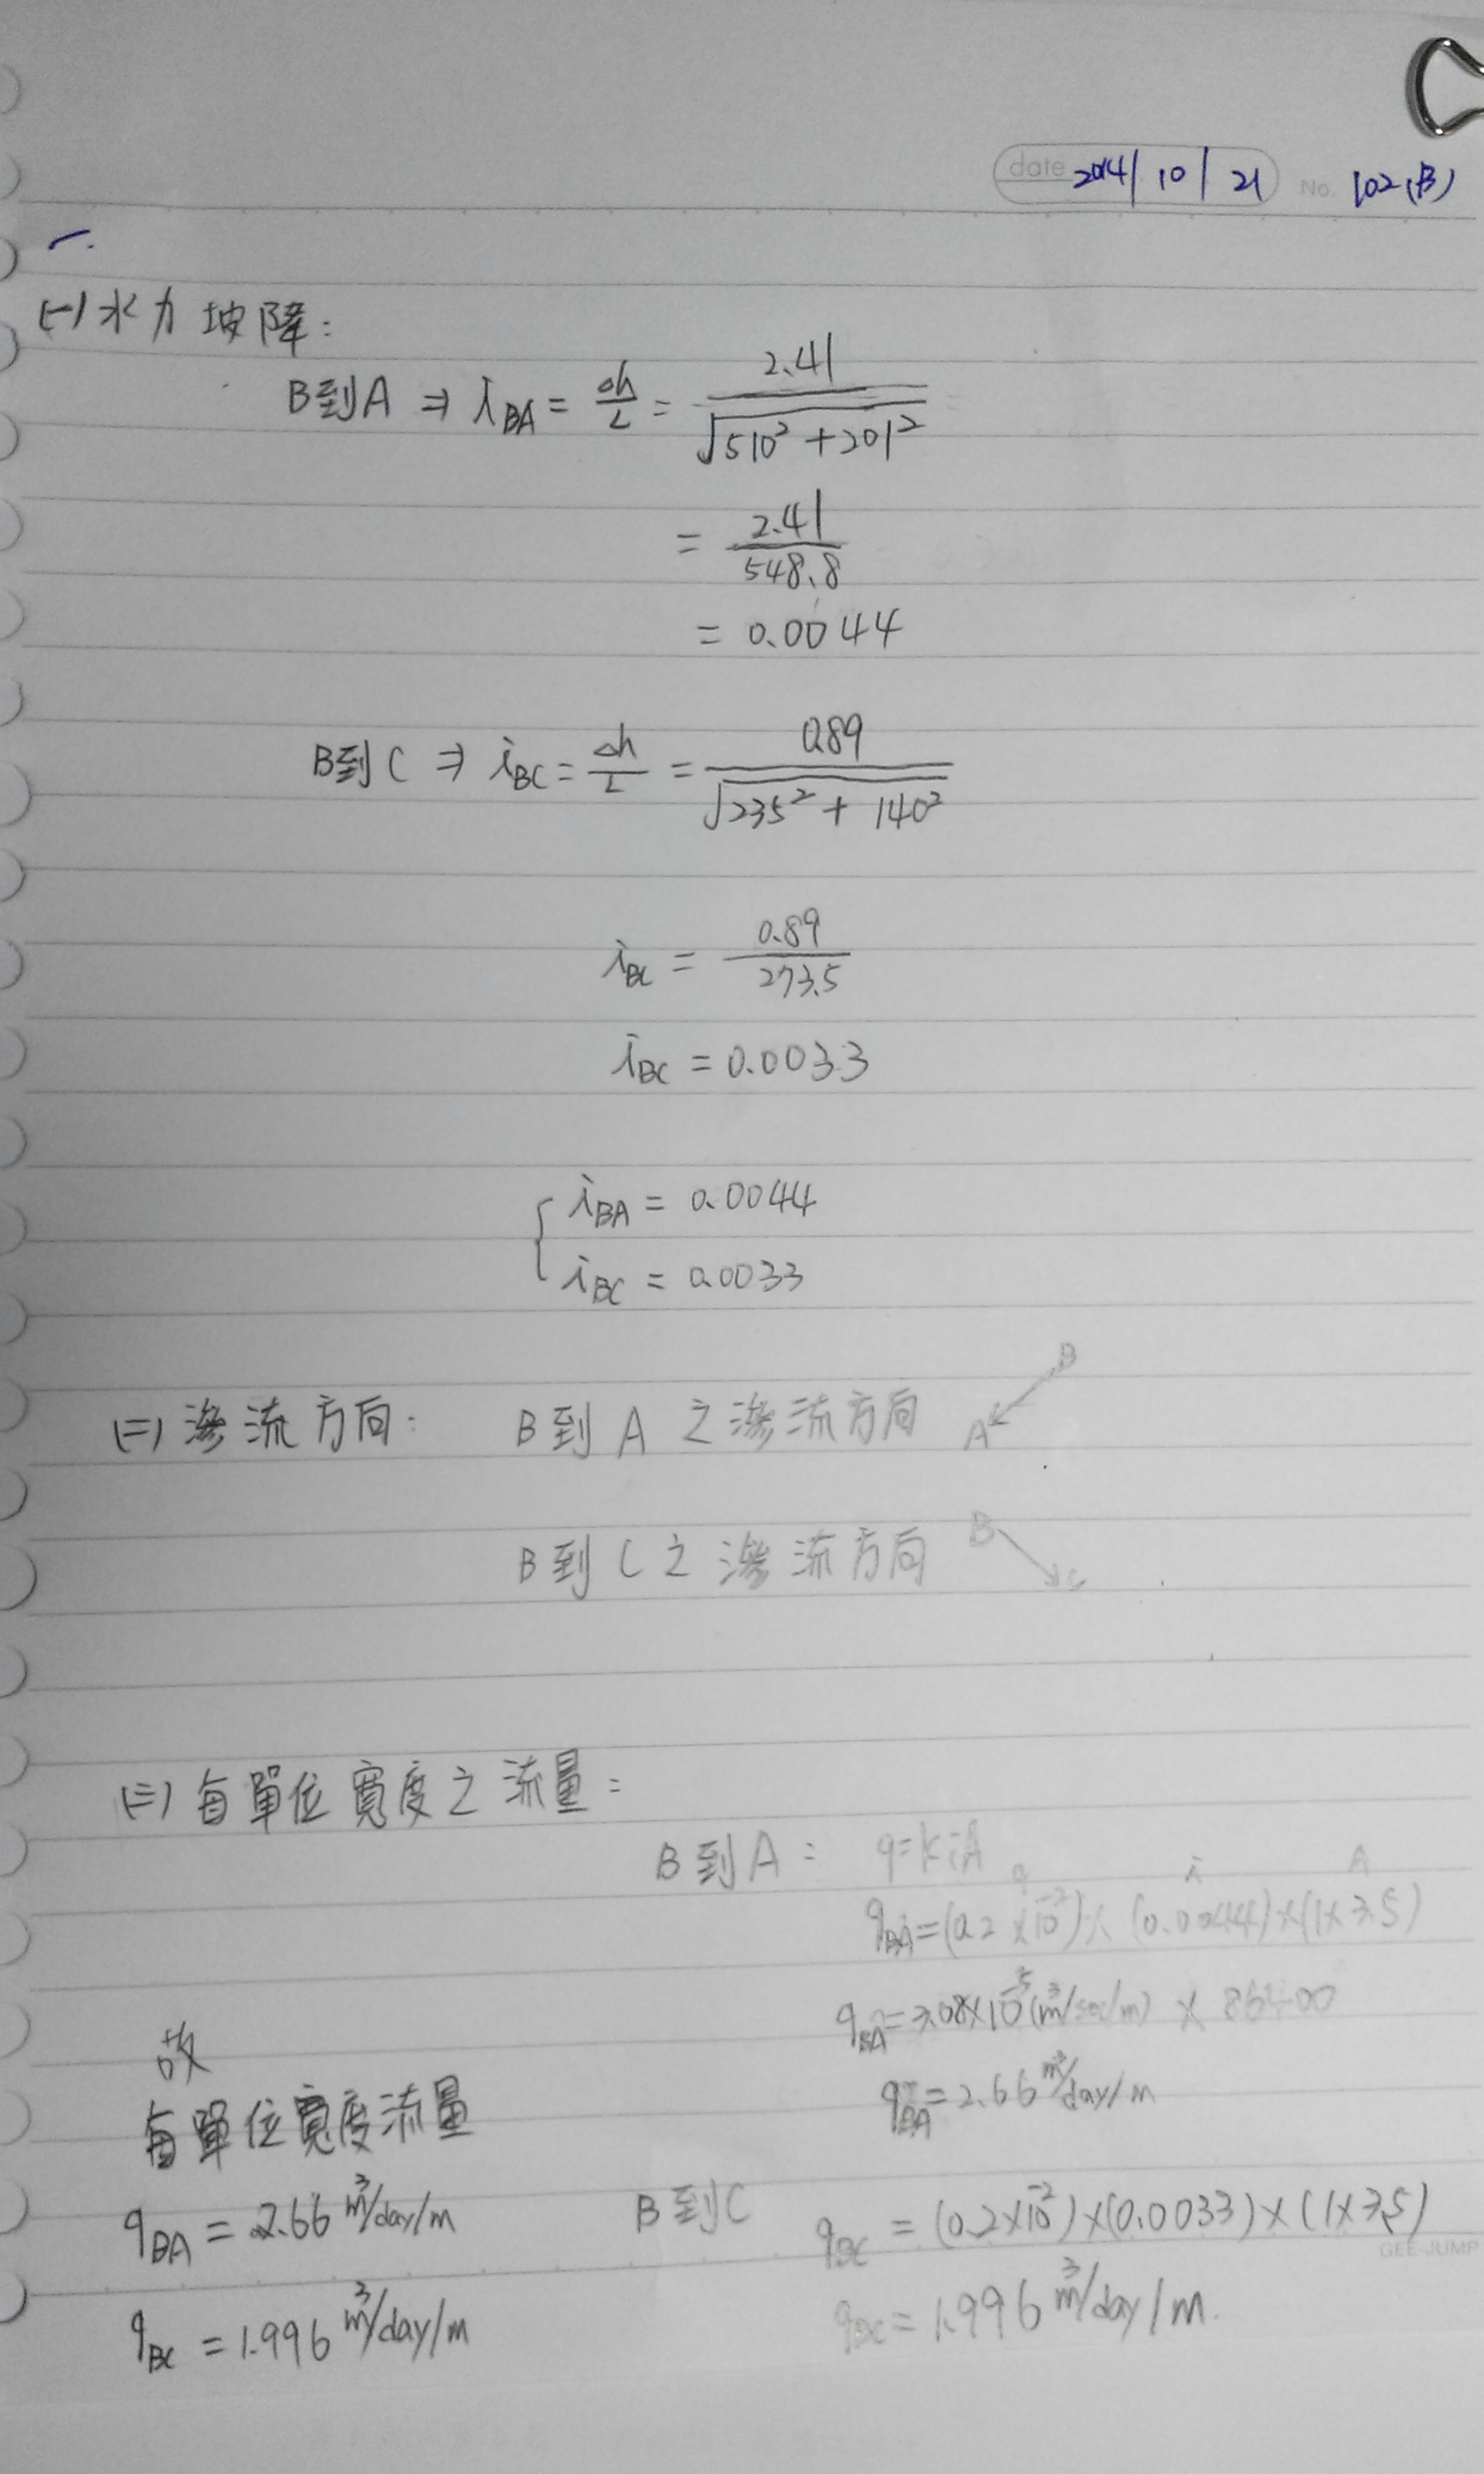 date 2014/10/21 No. 102(B)
一.
(一) 水力坡降:
B到A ⇒ i_BA = Δh/L = 2.41/√(510²+201²)
= 2.41/548.8
= 0.0044
B到C ⇒ i_BC = Δh/L = 0.89/√(235²+140²)
i_BC = 0.89/273.5
i_BC = 0.0033
{ i_BA = 0.0044
i_BC = 0.0033
(二) 滲流方向: B到A之滲流方向 B A
B到C之滲流方向 B C
(三) 每單位寬度之流量:
B到A: q=kiA
q i A
q_BA=(0.2×10⁻²)×(0.0044)×(1×3.5)
q_BA=3.08×10⁻⁵(m³/sec/m) × 86400
故
q_BA=2.66 m³/day/m
每單位寬度流量
q_BA = 2.66 m³/day/m
B到C q_BC = (0.2×10⁻²)×(0.0033)×(1×3.5)
GEE-JUMP
q_BC = 1.996 m³/day/m
q_BC = 1.996 m³/day/m.